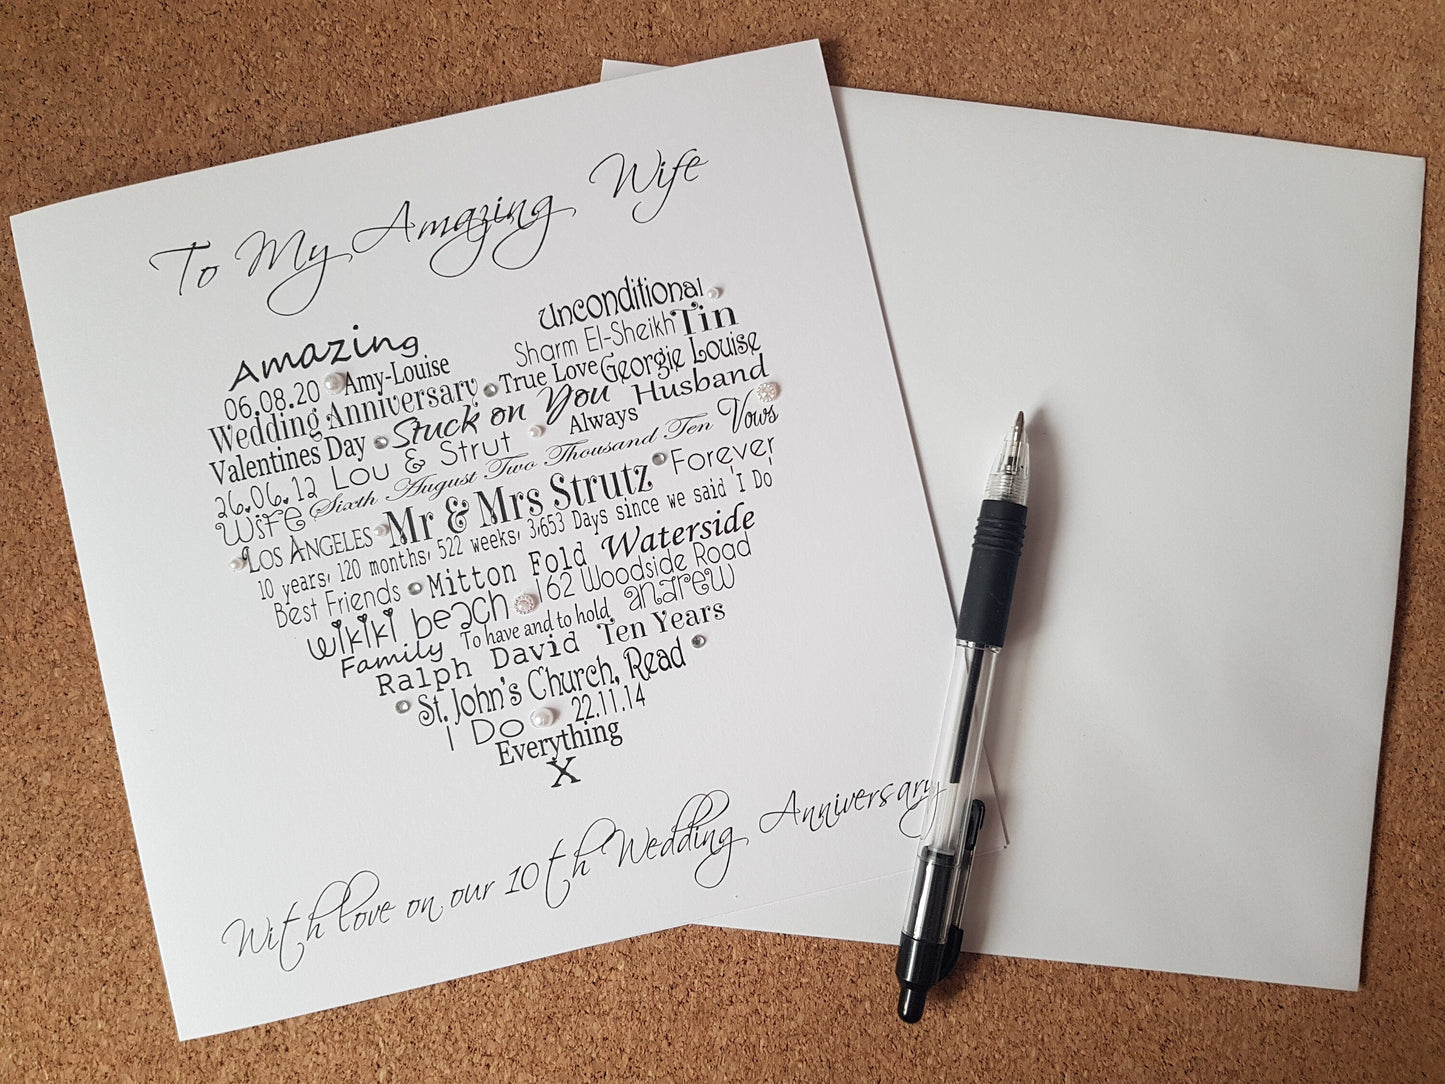 To My Amazing Wife
Unconditional
Amazing
Sharm El-Sheikh Tin
06.08.20 Amy-Louise
True Love Georgie Louise
Wedding Anniversary
Stuck on You Husband
Valentines Day
Always
Vows
Lou & Strut
26.06.12
Sixth August Two Thousand Ten
Forever
Wife
Mr & Mrs Strutz
LOS ANGELES
10 years, 120 months, 522 weeks, 3,653 Days since we said 'I Do'
Best Friends
Mitton Fold
Waterside
wikiki beach
162 Woodside Road
Family
To have and to hold
andrew
Ralph David
Ten Years
St. John's Church, Read
I Do
22.11.14
Everything
X
With love on our 10th Wedding Anniversary